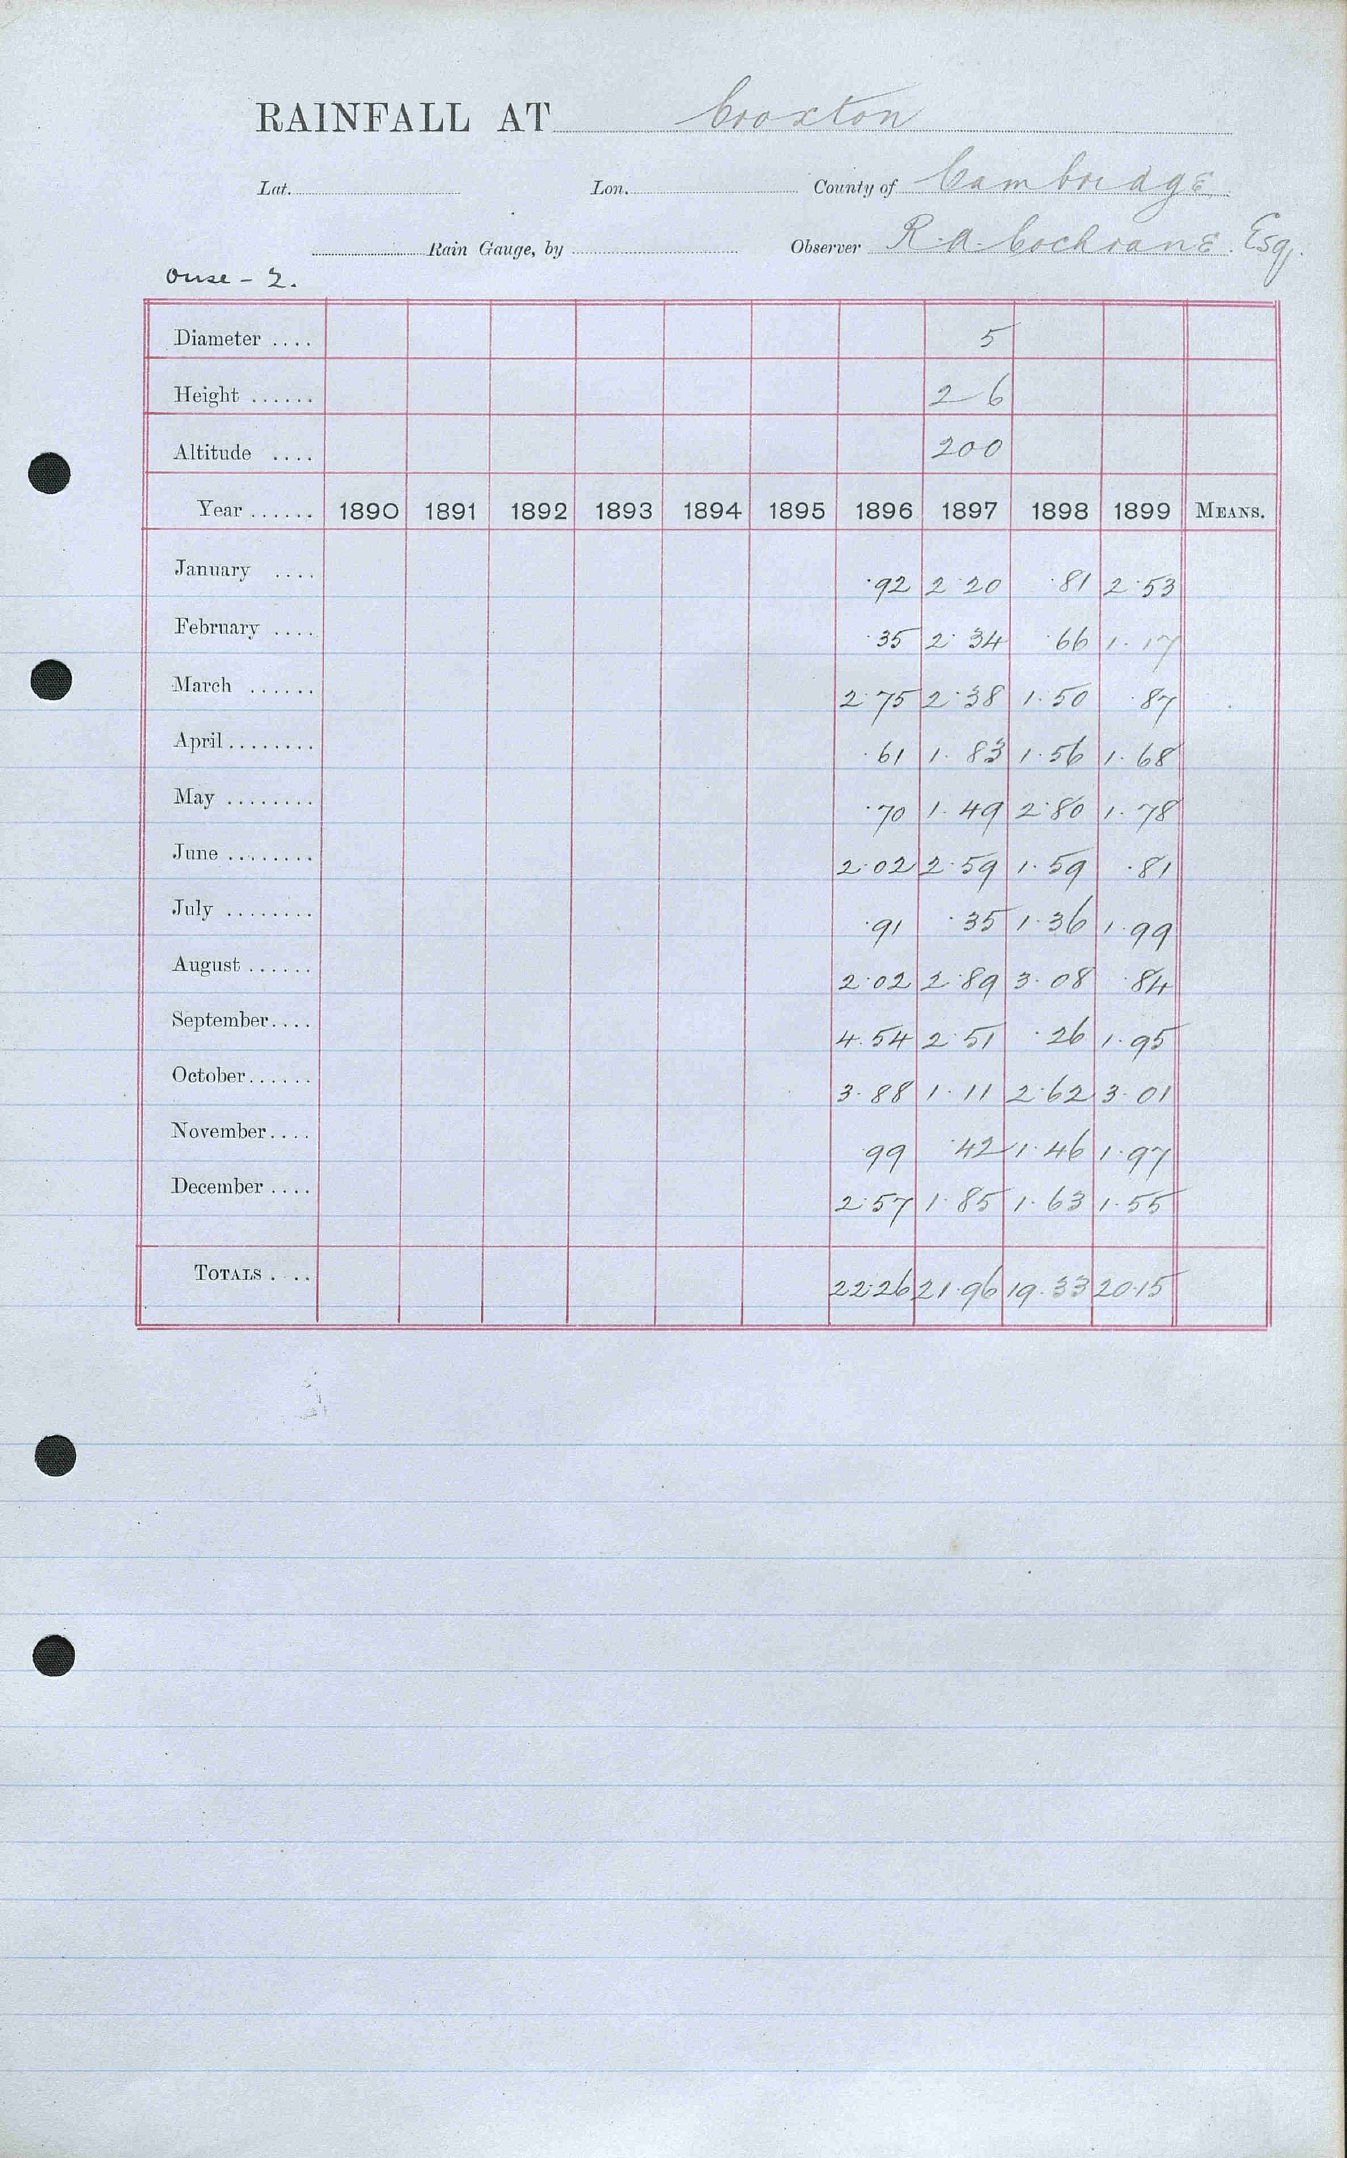 RAINFALL AT Croxton
Lat. Lon. County of Cambridge
Rain Gauge, by Observer R.A. Cochrane. Esq.
Ouse - 2.
Diameter .... 5
Height ...... 2 6
Altitude .... 200
Year ...... 1890 1891 1892 1893 1894 1895 1896 1897 1898 1899 MEANS.
January .... ·92 2·20 ·81 2·53
February .... ·35 2·34 ·66 1·17
March ...... 2·75 2·38 1·50 ·87
April ........ ·61 1·83 1·56 1·68
May ........ ·70 1·49 2·80 1·78
June ........ 2·02 2·59 1·59 ·81
July ........ ·91 ·35 1·36 1·99
August ...... 2·02 2·89 3·08 ·84
September.... 4·54 2·51 ·26 1·95
October...... 3·88 1·11 2·62 3·01
November.... ·99 ·42 1·46 1·97
December .... 2·57 1·85 1·63 1·55
TOTALS .... 22·26 21·96 19·33 20·15